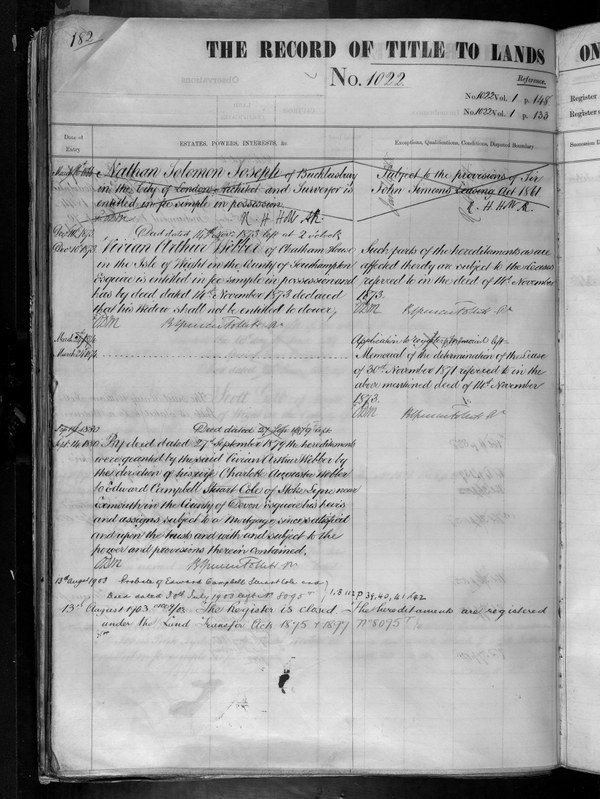 182
THE RECORD OF TITLE TO LANDS
ON
No. 1022.
Reference.
No. 1022 Vol. 1 p. 148
No. 1022 Vol. 1 p. 133
Register
Register
Date of
Entry
ESTATES, POWERS, INTERESTS, &c.
Exceptions, Qualifications, Conditions, Disputed Boundary
Nathan Solomon Joseph of Bucklersbury
in the City of London Architect and Surveyor is
entitled in fee simple in possession
Subject to the provisions of Sir
John Simeons Leasing Act 1861
Deed dated 14th Nov 1873 left at 2 o'clock
Vivian Arthur Webber of Chatham House
in the Isle of Wight in the County of Southampton
Esquire is entitled in fee simple in possession and
has by deed dated 14th November 1873 declared
that his Widow shall not be entitled to dower,
Such parts of the hereditaments as are
affected thereby are subject to the Leases
referred to in the deed of 14th November
1873.
Application to left
Memorial of the determination of the Lease
of 30th November 1871 referred to in the
above mentioned deed of 14th November
1873.
Deed dated 27 Sep 1879 left
Sept 14 1880
By deed dated 27th September 1879 the hereditaments
were granted by the said Vivian Arthur Webber by
the direction of his wife Charlotte Augusta Webber
to Edward Campbell Stuart Cole of Stoke Lyne near
Exmouth in the County of Devon Esquire his heirs
and assigns subject to a Mortgage since satisfied
and upon the trusts and with and subject to the
powers and provisions therein contained.
13th August 1903 Probate of Edward Campbell Stuart Cole and
Deed dated 30th July 1903 No 8095
13th August 1903 The Register is closed The hereditaments are registered
under the Land Transfer Acts 1875 & 1897 No 8095